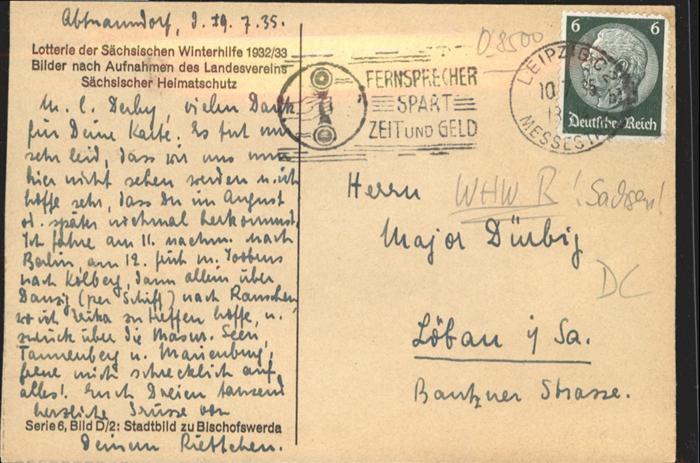 Abtnaundorf, d. 9.7.35.
Lotterie der Sächsischen Winterhilfe 1932/33
Bilder nach Aufnahmen des Landesvereins
Sächsischer Heimatschutz
M. l. Derby, vielen Dank
für Deine Karte. Es tut mir
sehr leid, dass wir uns nun
hier nicht sehen werden u. ich
hoffe sehr, dass Du im August
od. später nochmal herkommst.
Ich fahre am 11. nachm. nach
Berlin, am 12. früh m.
nach Kolberg, dann allein über
Danzig (per Schiff) nach Rauschen
wo ich zu treffen hoffe, u.
zurück über die Masur. Seen,
Tannenberg u. Marienburg,
freue mich schrecklich auf
alles! Euch Dreien tausend
herzliche Grüsse von
Serie 6, Bild D/2: Stadtbild zu Bischofswerda
Deinem
O 8500
FERNSPRECHER
SPART
ZEIT UND GELD
LEIPZIG C
10
35
13
MESSEST
6 6
Deutsches Reich
Herrn
WHW R ! Sachsen!
Major Dürbig
DC
Löbau i/ Sa.
Bautzner Strasse.